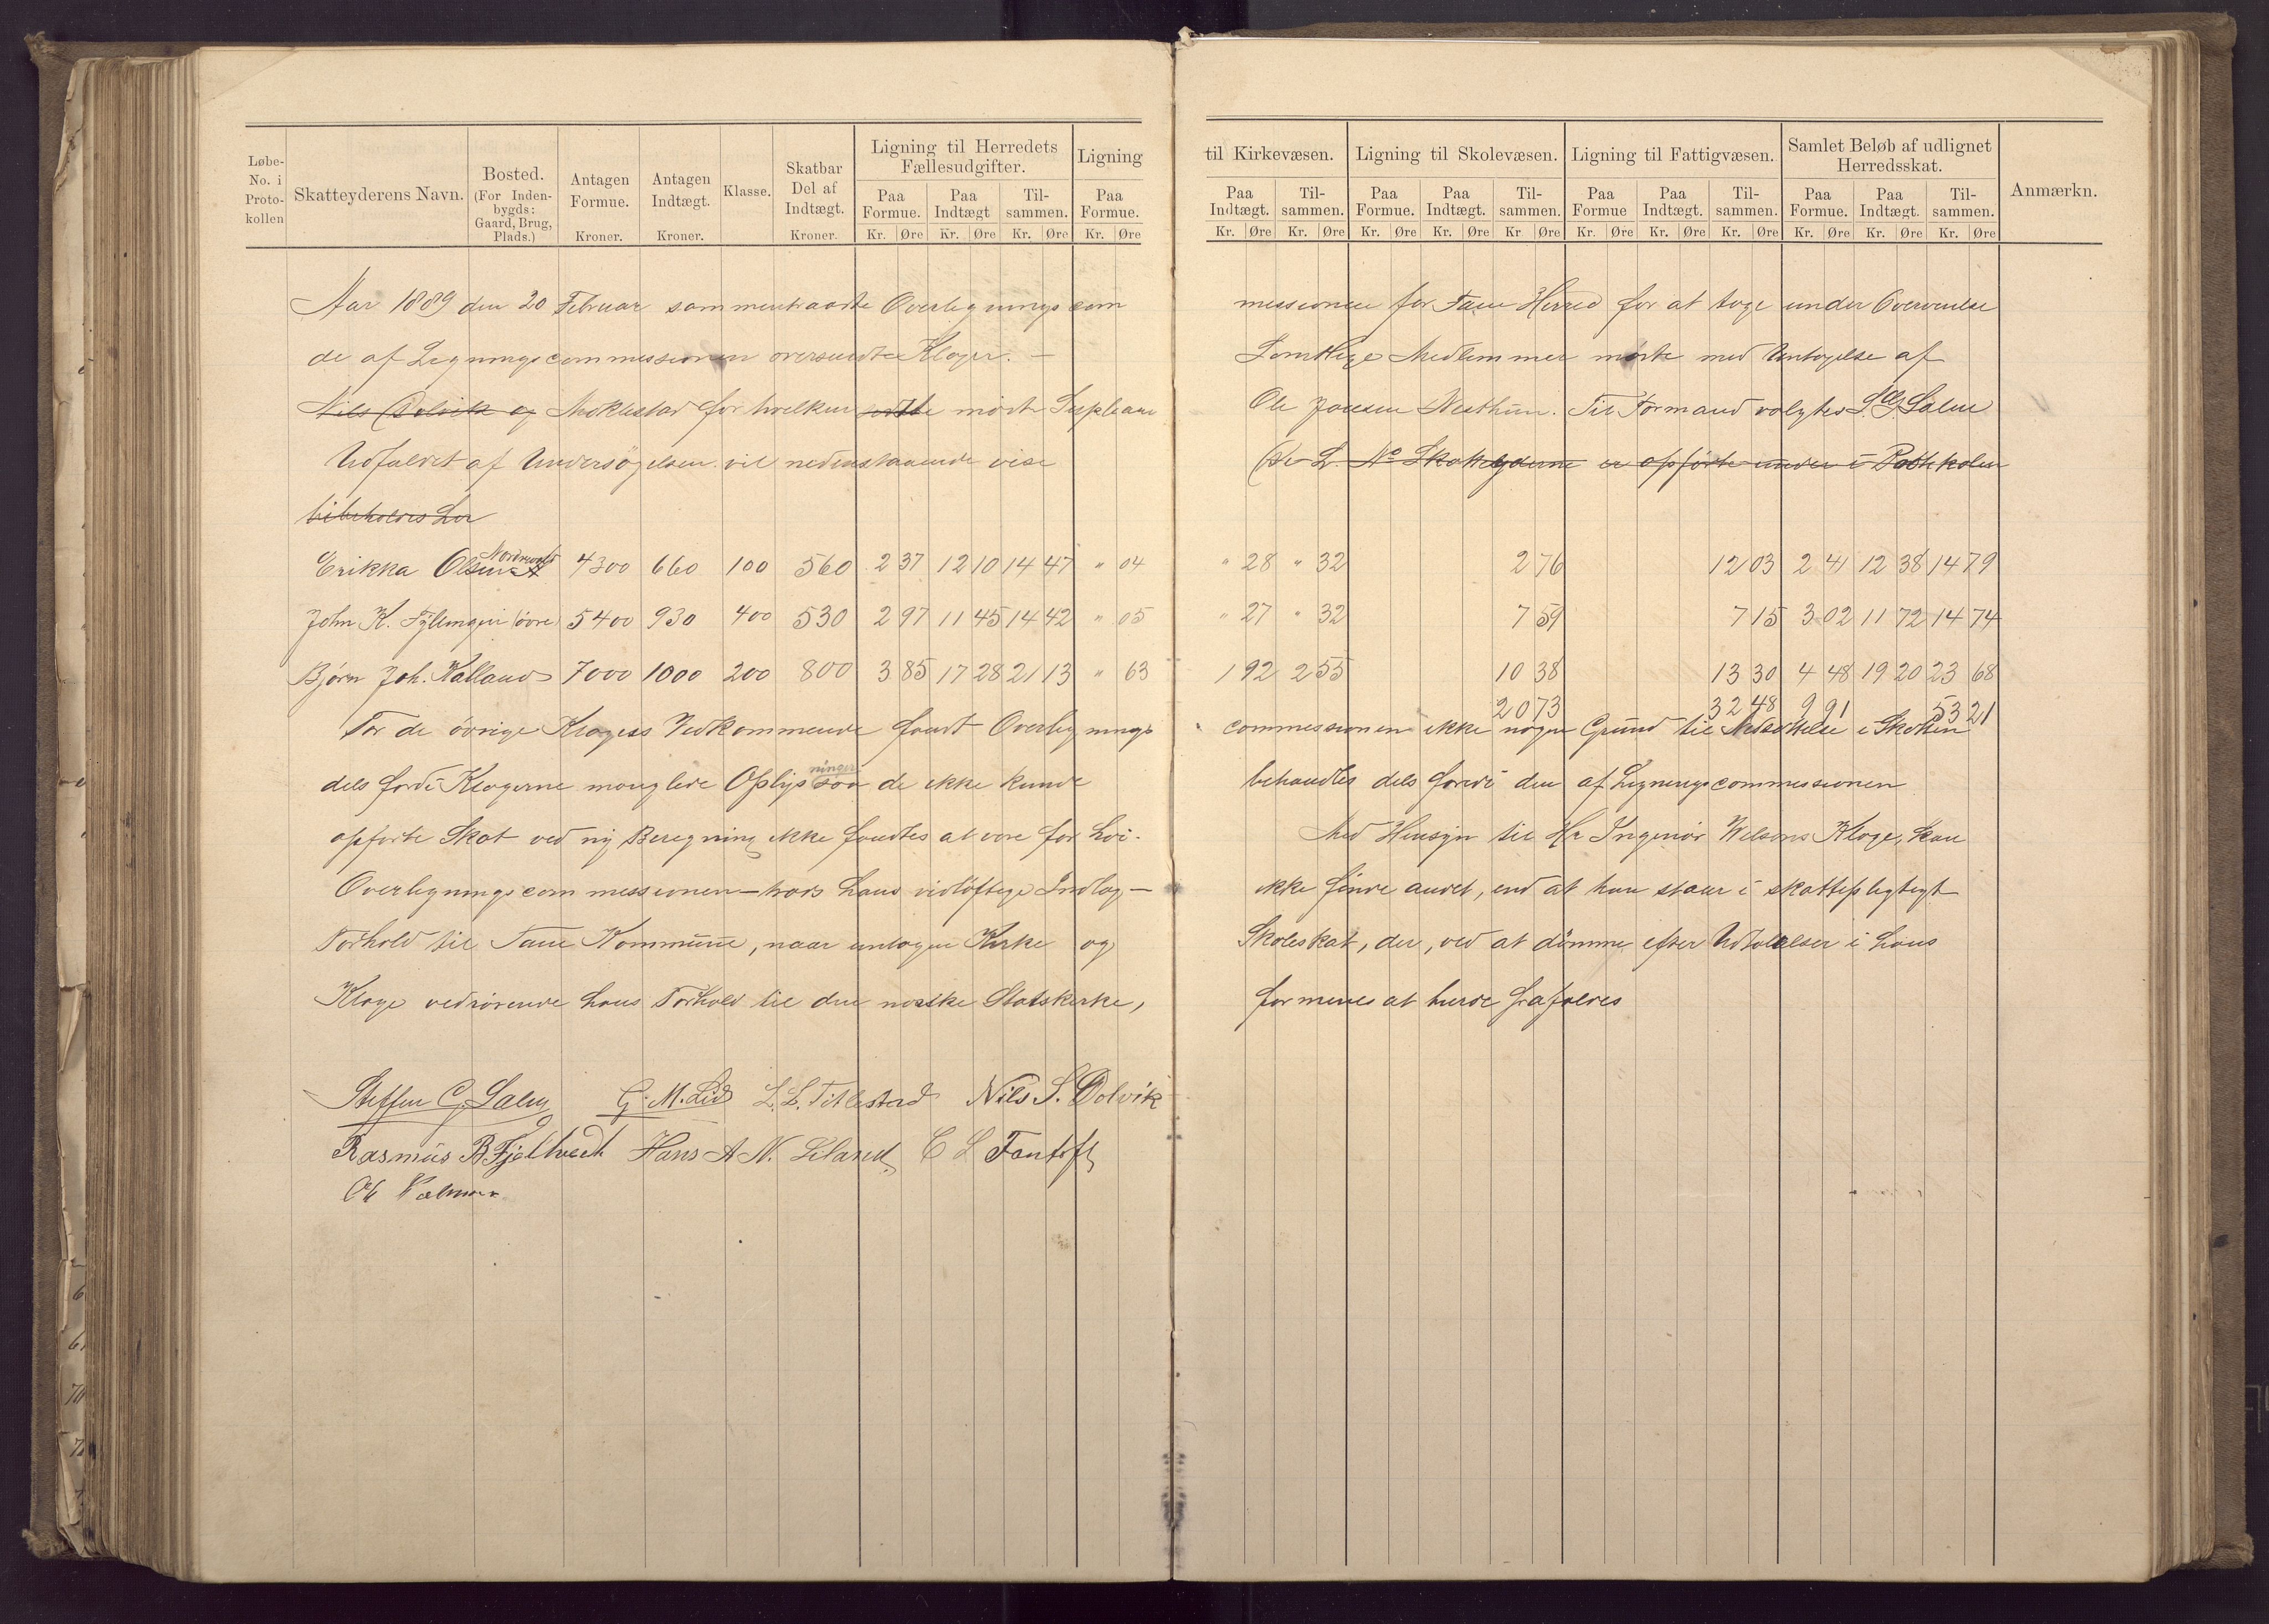 Løbe-No. i Proto-kollen
Skatteyderens Navn.
Bosted. (For Inden-bygds: Gaard, Brug, Plads.)
Antagen Formue. Kroner.
Antagen Indtægt. Kroner.
Klasse.
Skatbar Del af Indtægt. Kroner.
Ligning til Herredets Fællesudgifter.
Paa Formue. Paa Indtægt Til-sammen.
Kr. Øre Kr. Øre Kr. Øre
Ligning til Kirkevæsen.
Paa Formue. Paa Indtægt. Til-sammen.
Kr. Øre Kr. Øre Kr. Øre
Ligning til Skolevæsen.
Paa Formue. Paa Indtægt. Til-sammen.
Kr. Øre Kr. Øre Kr Øre
Ligning til Fattigvæsen.
Paa Formue Paa Indtægt. Til-sammen.
Kr. Øre Kr. Øre Kr. Øre
Samlet Beløb af udlignet Herredsskat.
Paa Formue. Paa Indtægt. Til-sammen.
Kr. Øre Kr. Øre Kr. Øre
Anmærkn.
Aar 1889 den 20 Februar sammentraadte Overlegningscom messionen for Fane Herred for at tage under Overveielse
de af Legningscommessionen oversendte Klager. — Samtlige Medlemmer mødte med Untagelse af
Nils Dolvik og Meklestad for hvilken mødte Supleant Ole Jansen Nesthun. Til Formand valgtes St. Cl. Salen
Udfaldet af Undersøgelsen vil nedenstaaende vise (De L. No Skatteyderne er opførte under i Protokolen
bibeholdes her
Erikka Olsen Nordnwold 4300 660 100 560 2 37 12 10 14 47 " 04 " 28 " 32 2 76 12 03 2 41 12 38 14 79
John K. Fyllingen (øvre) 5400 930 400 530 2 97 11 45 14 42 " 05 " 27 " 32 7 59 7 15 3 02 11 72 14 74
Bjørn Joh. Kalland 7000 1000 200 800 3 85 17 28 21 13 " 63 1 92 2 55 10 38 13 30 4 48 19 20 23 68
20 73 32 48 9 91 53 21
For de øvrige Klagess Vedkommende fandt Overlegnings commessionen ikke nogen Grund til Nedsættelse i Skatten
dels fordi Klagerne manglede Oplysninger saa de ikke kunde behandles dels fordi den af Legningscommessionen
opførte Skat ved ny Beregning ikke fandtes at vere for høi. Med Hensyn til Hr Ingeniør Welsons Klage, kan
Overlegningscommessionen—trods hans vidløftige Indlag— ikke finde andet, end at han staar i skattepligtigt
Forhold til Fane Kommune, naar untagen Kirke og Skoleskat, der, ved at dømme efter Udtalelser i hans
Klage vedrørende hans Forhold til den norske Statskirke, formenes at burde frafaldes
Steffen C. Salen G. M. Lid L. L. Titlestad Nils S. Dolvik
Rasmus B. Fjeltvedt Hans A N. Liland C L Fantoft